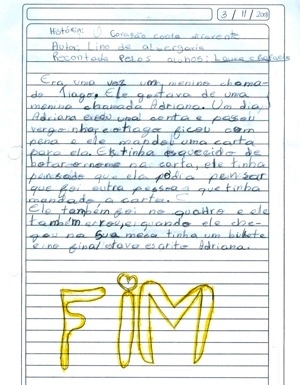 13 / 11 / 2013
História: O Coração conta diferente
Autor: Lino de albergaria
Recontado Pelos alunos: Laura e
Era uma vez um menino chama-
do Tiago, Ele gostava de uma
menina chamada Adriana. Um dia
Adriana erou uma conta e passou
vergonha, e o tiago ficou com
pena e ele mandou uma carta
para ela. Ele tinha esquecido de
botar o nome na carta, ele tinha
pensado que ela podia pensar
que foi outra pessoa que tinha
mandado a carta.
Ele também foi no quadro e ele
também errou, e quando ele che-
gou na sua mesa tinha um bilhete
e no final estava escrito Adriana.
FIM